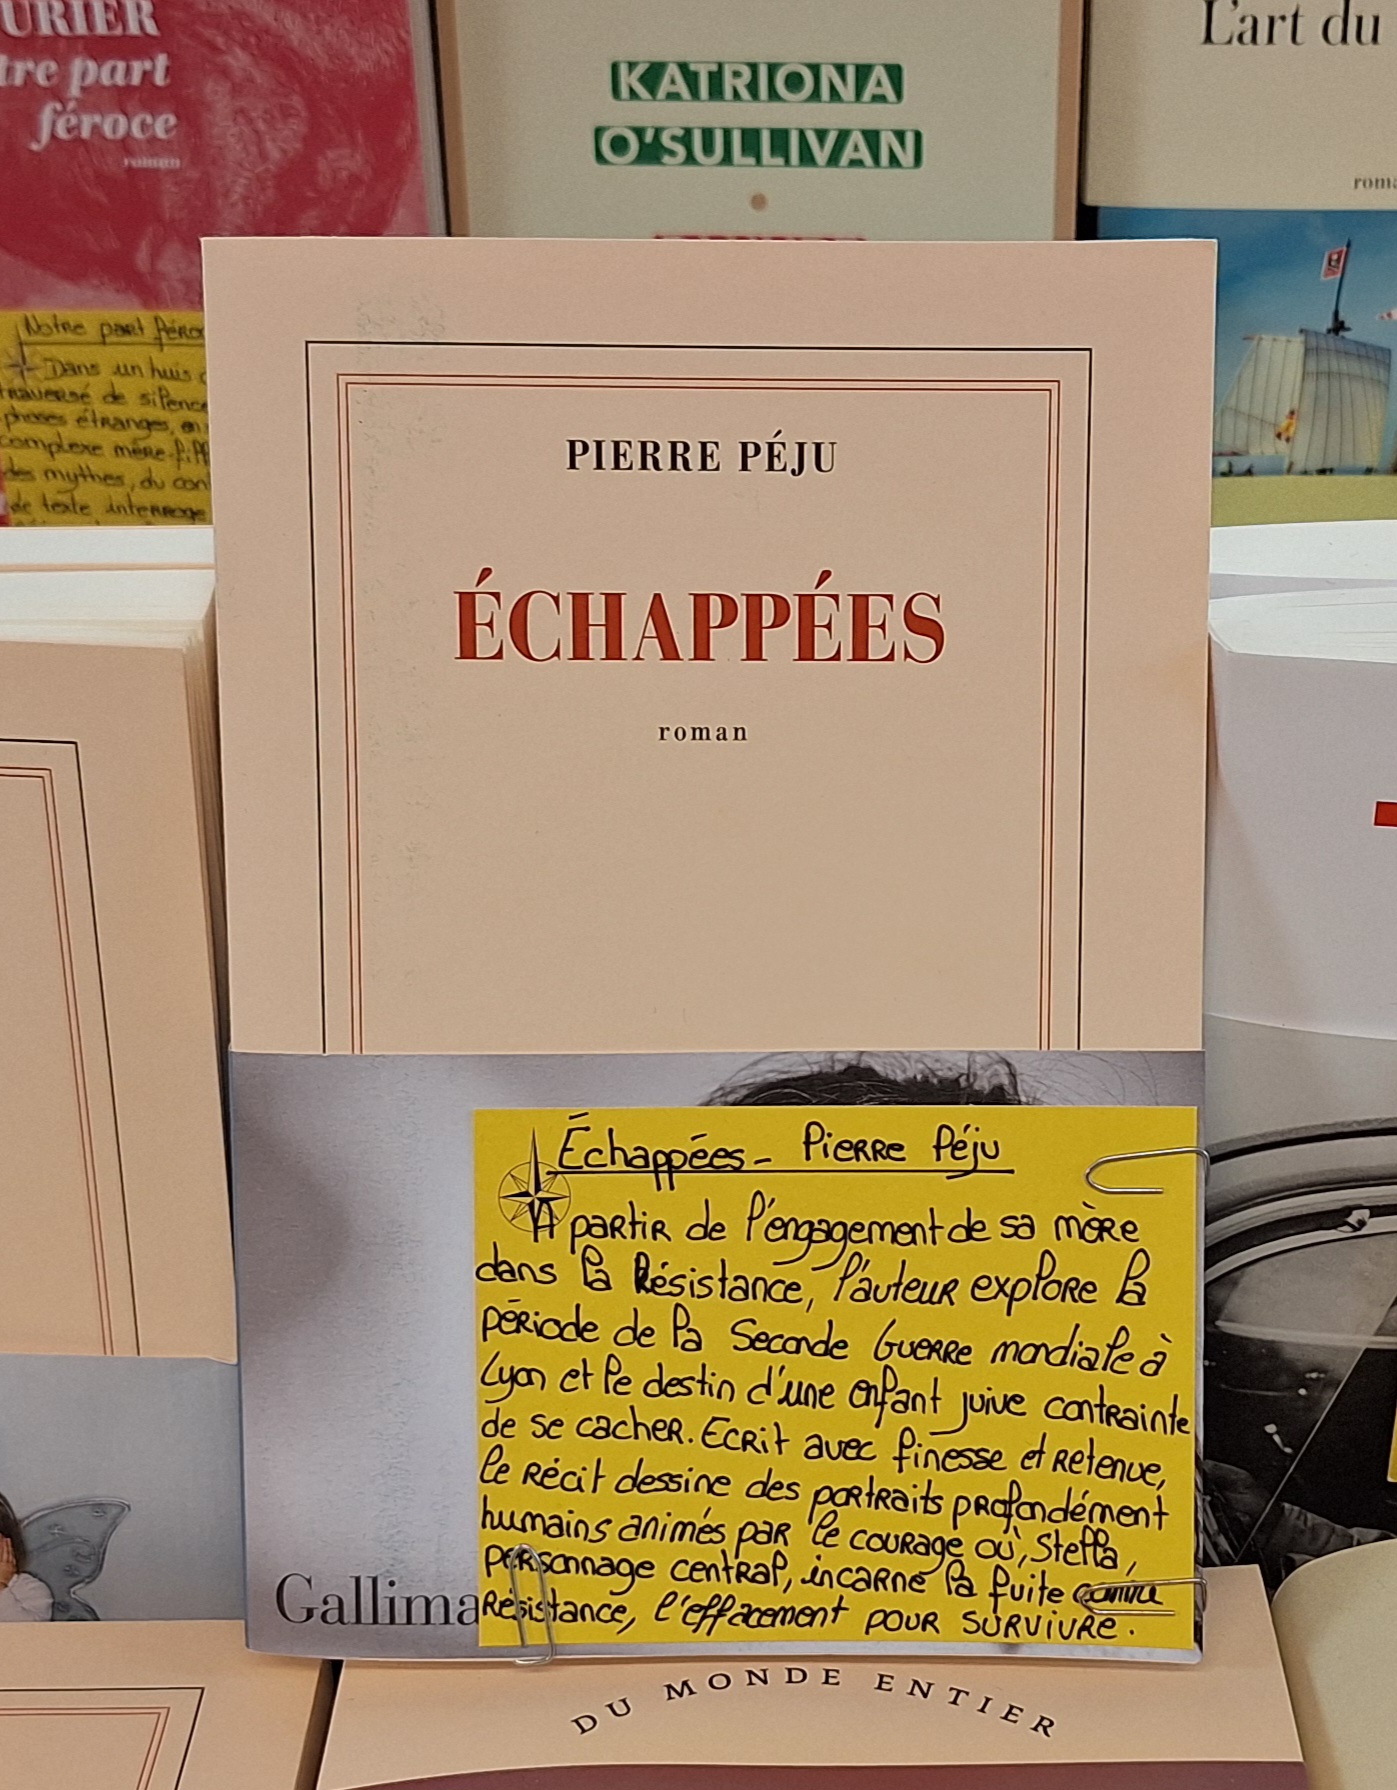 URIER
tre part
féroce
roman
KATRIONA
O'SULLIVAN
L'art du
Notre part
Dans un huis
traversé de silence
étranges, en
complexe mère-fill
des mythes, du
de texte interroge
PIERRE PÉJU
ÉCHAPPÉES
roman
Échappées - Pierre Péju
A partir de l'engagement de sa mère
dans la Résistance, l'auteur explore la
période de la Seconde Guerre mondiale à
Lyon et le destin d'une enfant juive contrainte
de se cacher. Ecrit avec finesse et retenue,
le récit dessine des portraits profondément
humains animés par le courage où, Stella,
personnage central, incarne la fuite comme
Résistance, l'effacement pour survivre.
Gallima
DU MONDE ENTIER